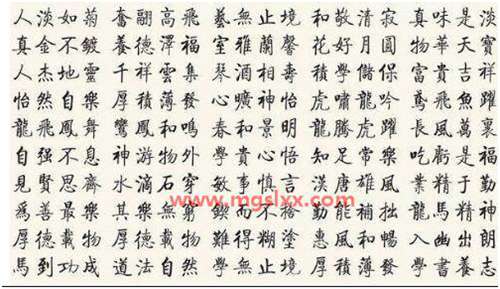 人淡如菊 奮翮高飛 藝無止境 和敬清寂 真味是淡
真金不鍍 養德澤福 室雅蘭馨 花好月圓 物華天寶
人杰地靈 千祥雲集 琴酒相壽 學儲保 富貴吉祥
怡然自樂 厚積薄發 心曠神怡 虎嘯龍吟 鳶飛魚躍
龍飛鳳舞 鸞鳳和鳴 春和景明 龍騰虎躍 長風萬里
自强不息 神游物外 學貴心悟 知足常樂 吃虧是福
見賢思齊 水滴石穿 敏事慎言 漢唐雄風 業精于勤
爲善最樂 其樂無窮 鍥而不捨 勤能補拙 龍馬精神
厚德載物 厚德載物 難得糊塗 惠風和暢 入幽出朗
馬到功成 道法自然 學無止境 厚積薄發 學書養志
www.mgslxx.com